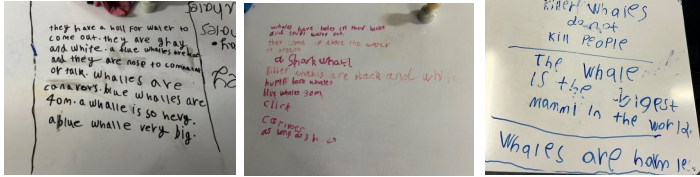 they have a holl for water to
come out. they are gray
and white. a blue whalles are
and they are nose to
or talk. whalles are
canavors. blue whalles are
40m. a whalle is so hevy.
a blue whalle very big.
whales have holes in their backs
and water out.
they come up above the water
a Shark wharl
Killer whales are black and white
humpff back whales
blue whales 30m
click
as long as 3 h
Killer Whales
do not
kill PeoPle
The Whale
IS the bigest
mamml in the world
Whales are harmle